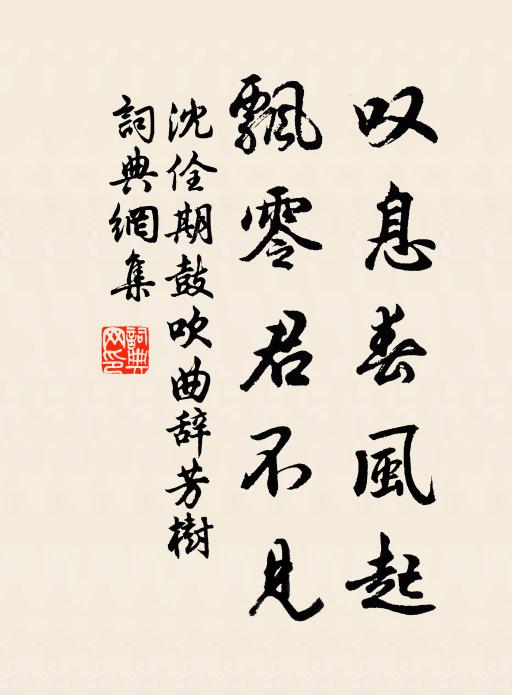 叹息春風起
飄零君不見
沈佺期鼓吹曲辞芳樹
詞典網集
詞典网印